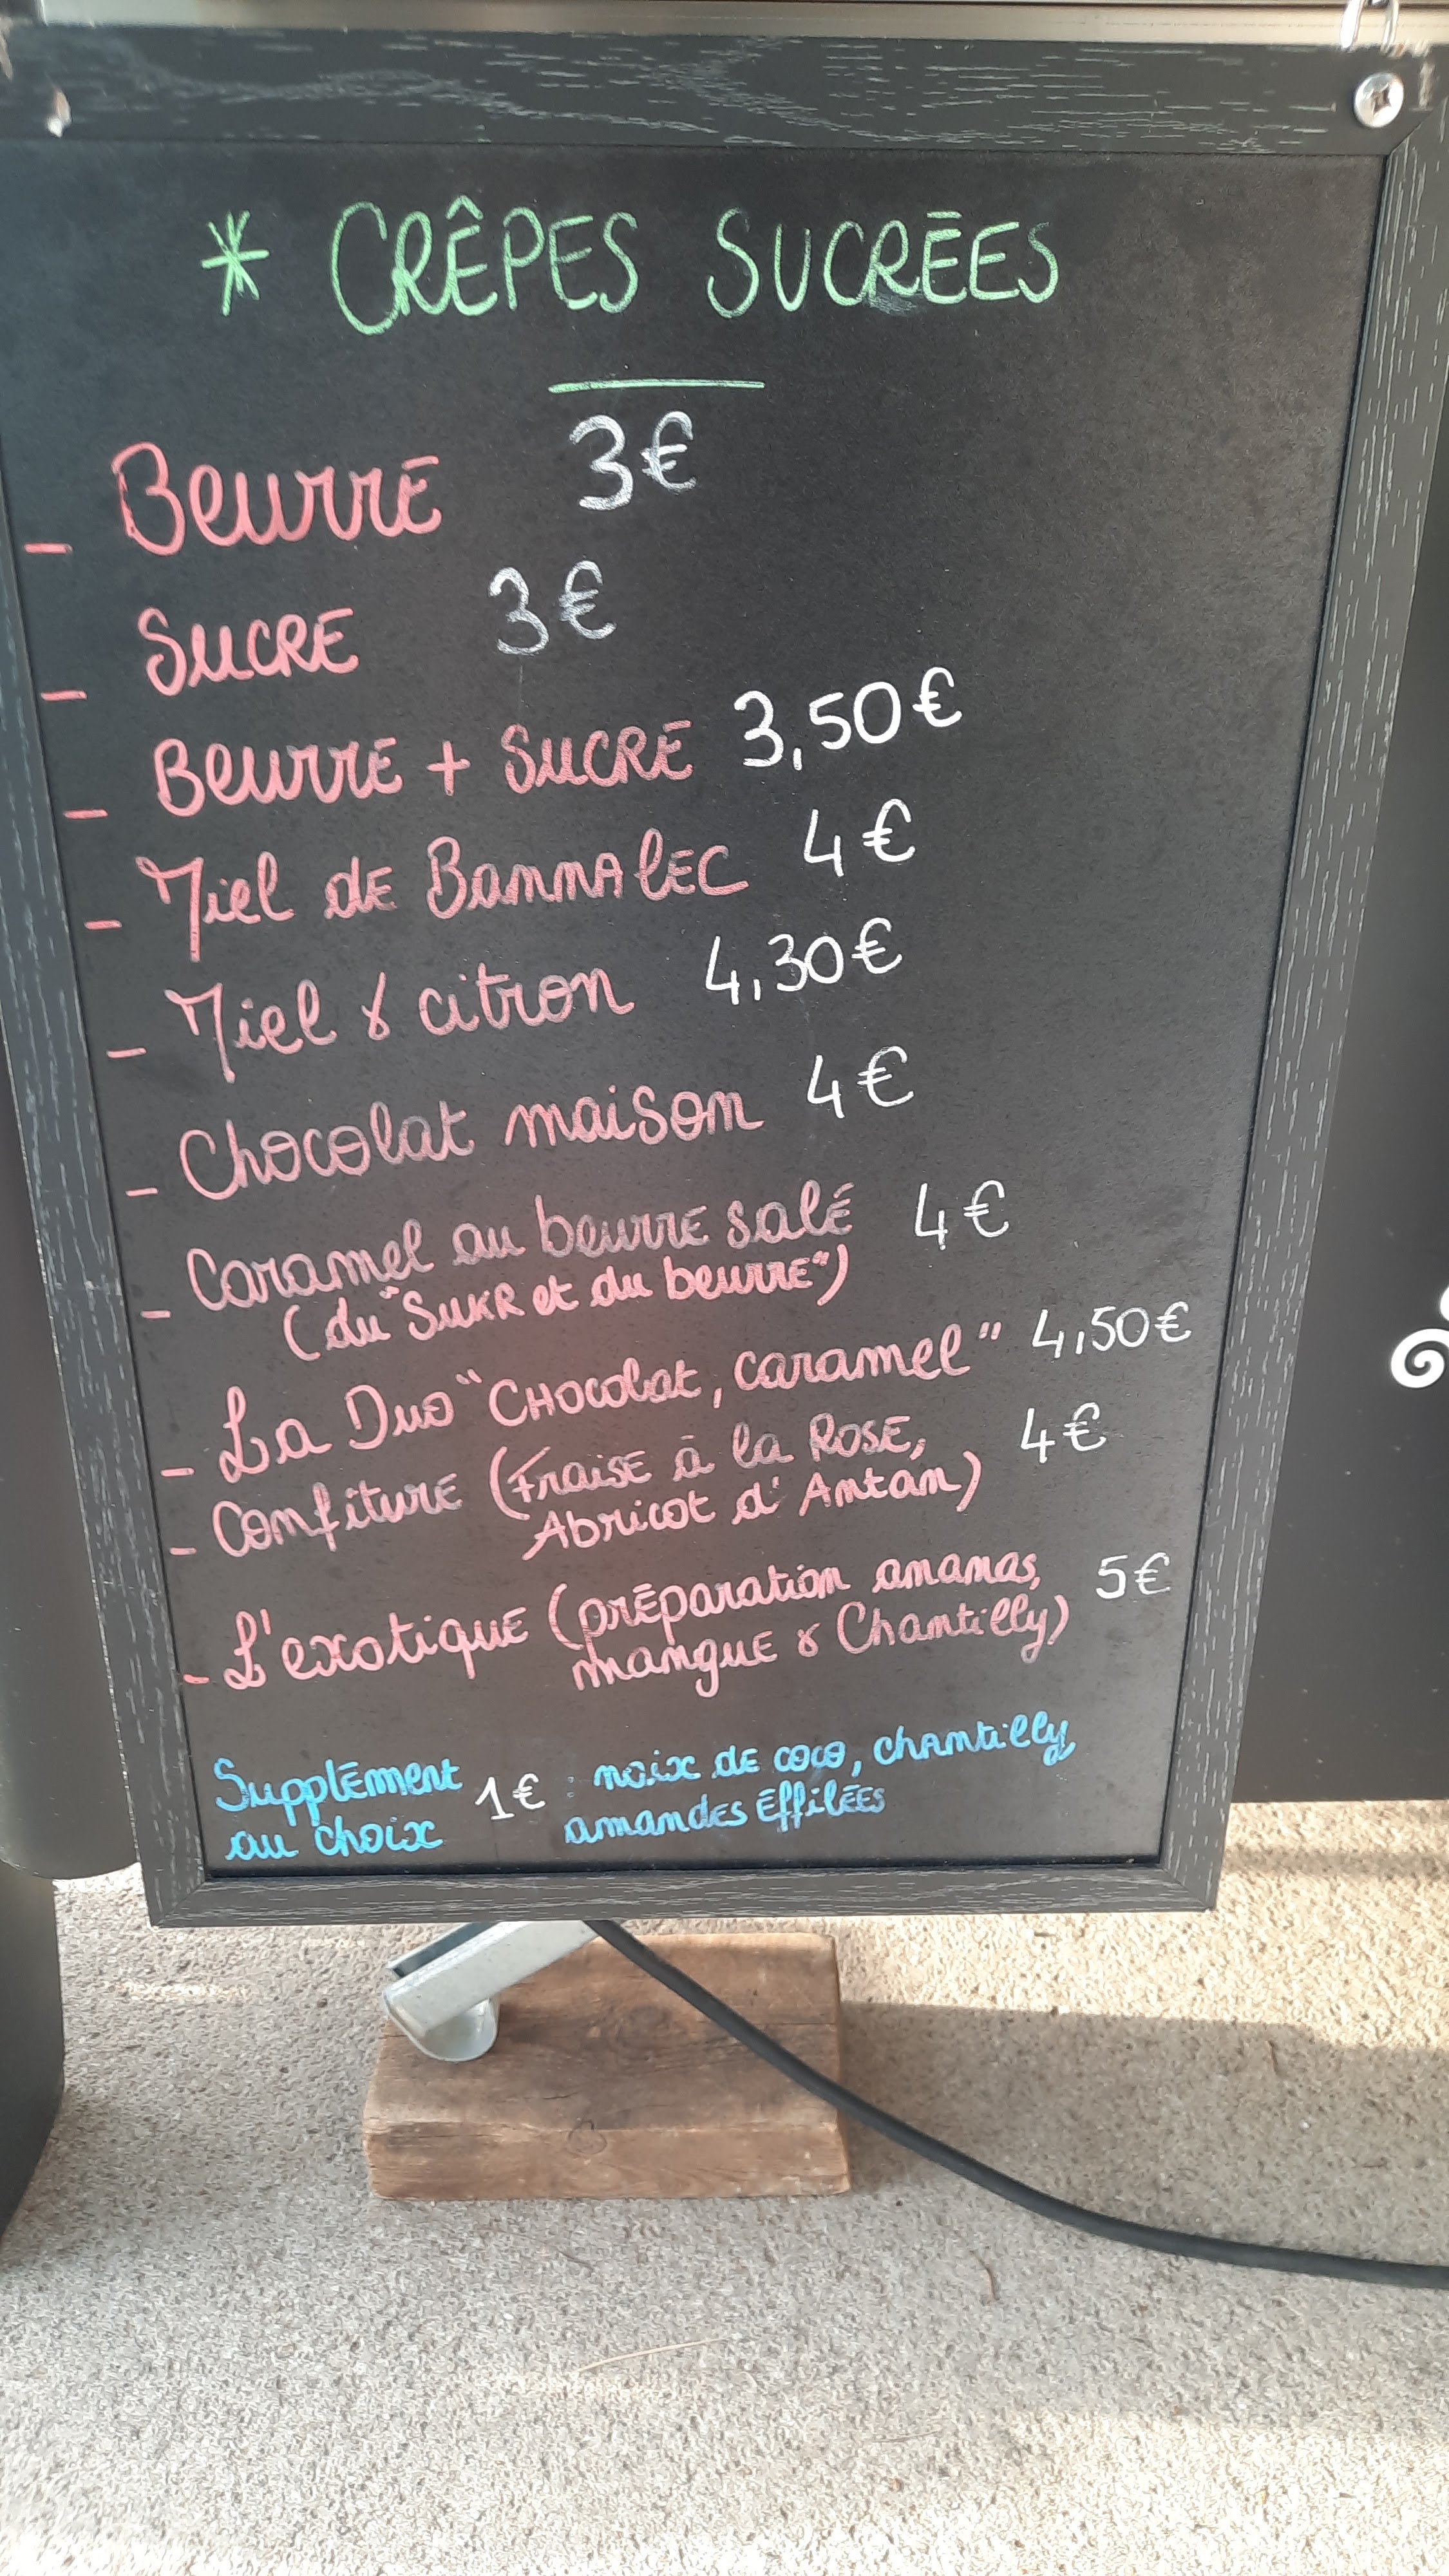 * CRÊPES SUCRÉES
- Beurre 3€
- Sucre 3€
- Beurre + Sucre 3,50€
- Miel de Bannalec 4€
- Miel & citron 4,30€
- Chocolat maison 4€
- Caramel au beurre salé 4€
(du "Sukr et du beurre")
- La Duo "Chocolat, caramel" 4,50€
- Confiture (Fraise à la Rose, 4€
Abricot d'Antan)
- L'exotique (préparation ananas, 5€
mangue & Chantilly)
Supplément 1€ : noix de coco, chantilly,
au choix amandes éffilées